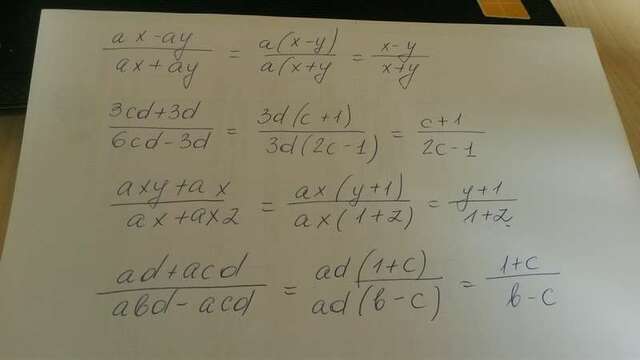 (ax-ay)/(ax+ay) = a(x-y)/a(x+y = (x-y)/(x+y)
(3cd+3d)/(6cd-3d) = 3d(c+1)/3d(2c-1) = (c+1)/(2c-1)
(axy+ax)/(ax+axz) = ax(y+1)/ax(1+z) = (y+1)/(1+z)
(ad+acd)/(abd-acd) = ad(1+c)/ad(b-c) = (1+c)/(b-c)